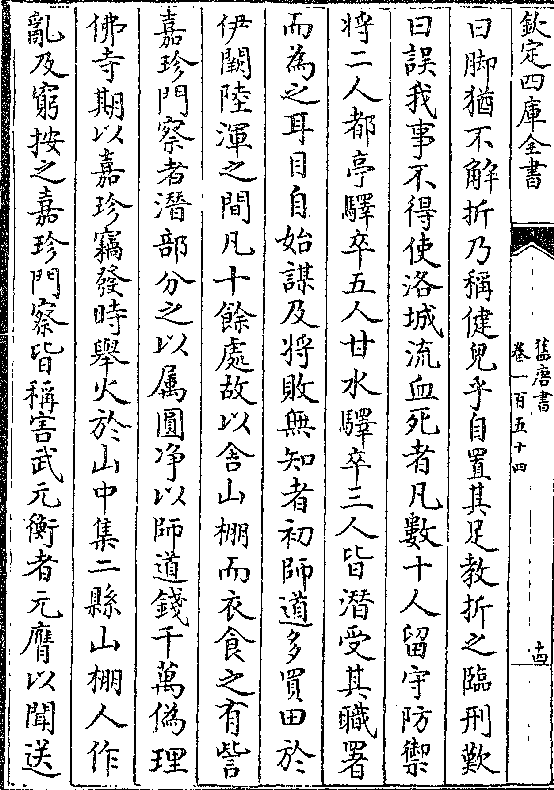 欽定四庫全書
舊唐書
卷一百五十四
十四
曰脚猶不解折乃稱健兒乎自置其足教折之臨刑歎
曰誤我事不得使洛城流血死者凡數十人留守防禦
將二人都亭驛卒五人甘水驛卒三人皆潛受其職署
而為之耳目自始謀及將敗無知者初師道多買田於
伊闕陸渾之間凡十餘處故以舍山棚而衣食之有訾
嘉珍門察者潛部分之以属圓净以師道錢千萬偽理
佛寺期以嘉珍竊發時舉火於山中集二縣山棚人作
亂及窮按之嘉珍門察皆稱害武元衡者元膺以聞送